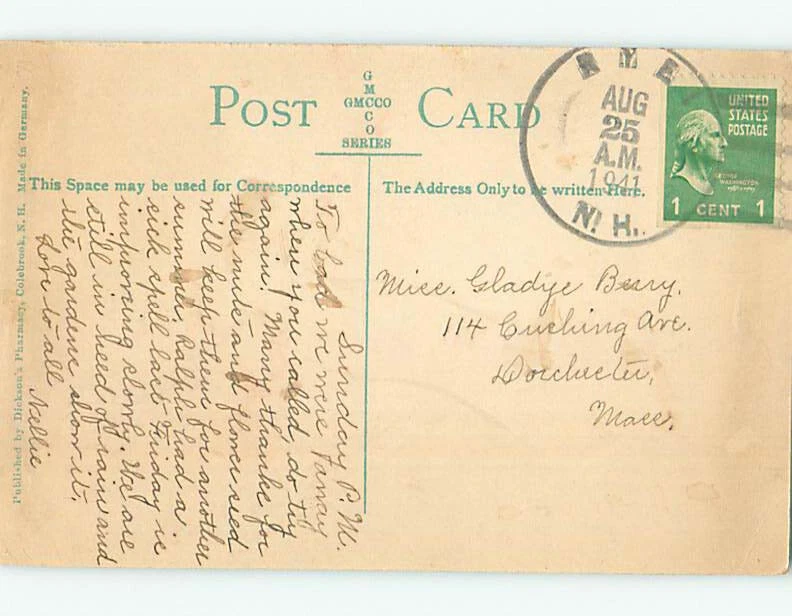 POST CARD
G
M
GMCCO
C
O
SERIES
RYE
AUG
25
A.M.
1941
N.H.
UNITED
STATES
POSTAGE
GEORGE
WASHINGTON
1 CENT 1
This Space may be used for Correspondence
The Address Only to be written Here.
Published by Dickson's Pharmacy, Colebrook, N. H. Made in Germany.
Sunday P.M.
To bad we were away
when you called, do try
again. Many thanks for
the note and flower seed
will keep them for another
summer, Ralph had a
sick spell last Friday is
improving slowly. We are
still in need of rain and
the gardens show it.
Love to all
Nellie
Miss. Gladys Berry.
114 Cushing Ave.
Dorchester,
Mass.